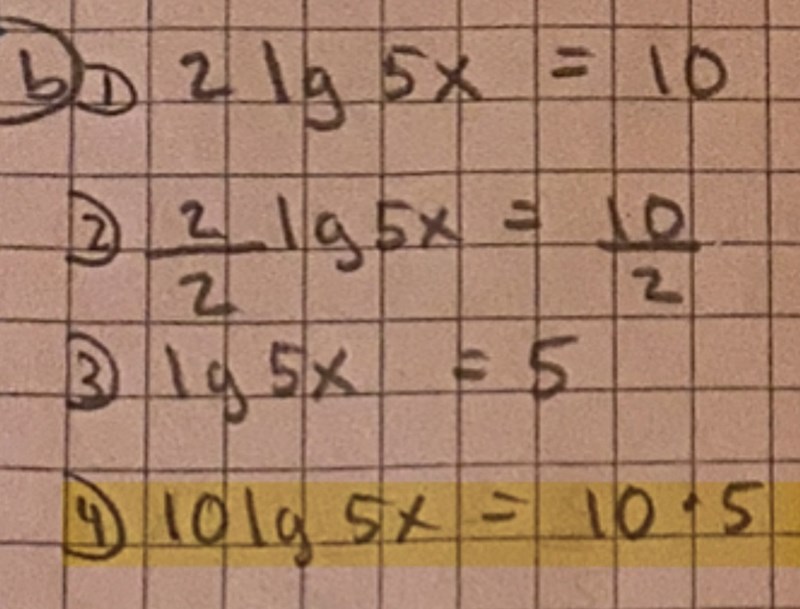 b) ① 2 lg 5x = 10
② 2/2 lg 5x = 10/2
③ lg 5x = 5
④ 10 lg 5x = 10 · 5